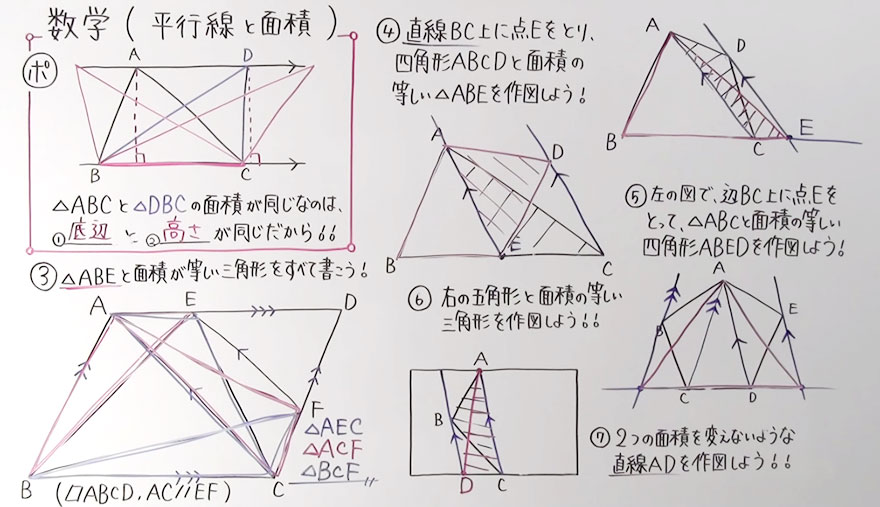 数学 ( 平行線と面積 )
ポ
A
D
B
C
△ABCと△DBCの面積が同じなのは、
①底辺と②高さが同じだから!!
③ △ABEと面積が等い三角形をすべて書こう!
A
E
D
F
B
C
△AEC
△ACF
△BCF
(▱ABCD, AC//EF)
④ 直線BC上に点Eをとり、
四角形ABCDと面積の
等しい△ABEを作図しよう!
A
D
B
C
E
A
D
B
E
C
⑤ 左の図で、辺BC上に点Eを
とって、△ABCと面積の等しい
四角形ABEDを作図しよう!
⑥ 右の五角形と面積の等しい
三角形を作図しよう!!
A
B
E
C
D
A
B
D
C
⑦ 2つの面積を変えないような
直線ADを作図しよう!!